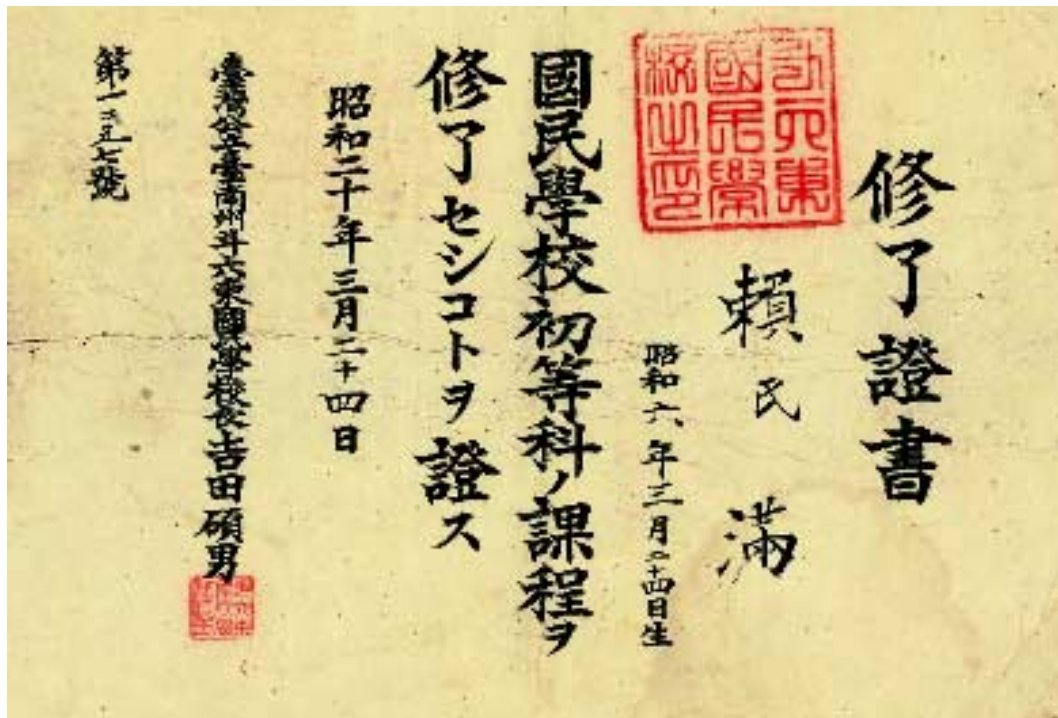 修了證書
斗六東
國民學
校之印
賴氏滿
昭和六年三月二十四日生
國民學校初等科ノ課程ヲ
修了セシコトヲ證ス
昭和二十年三月二十四日
臺灣公立臺南州斗六東國民學校長吉田碩男
第一二五七號